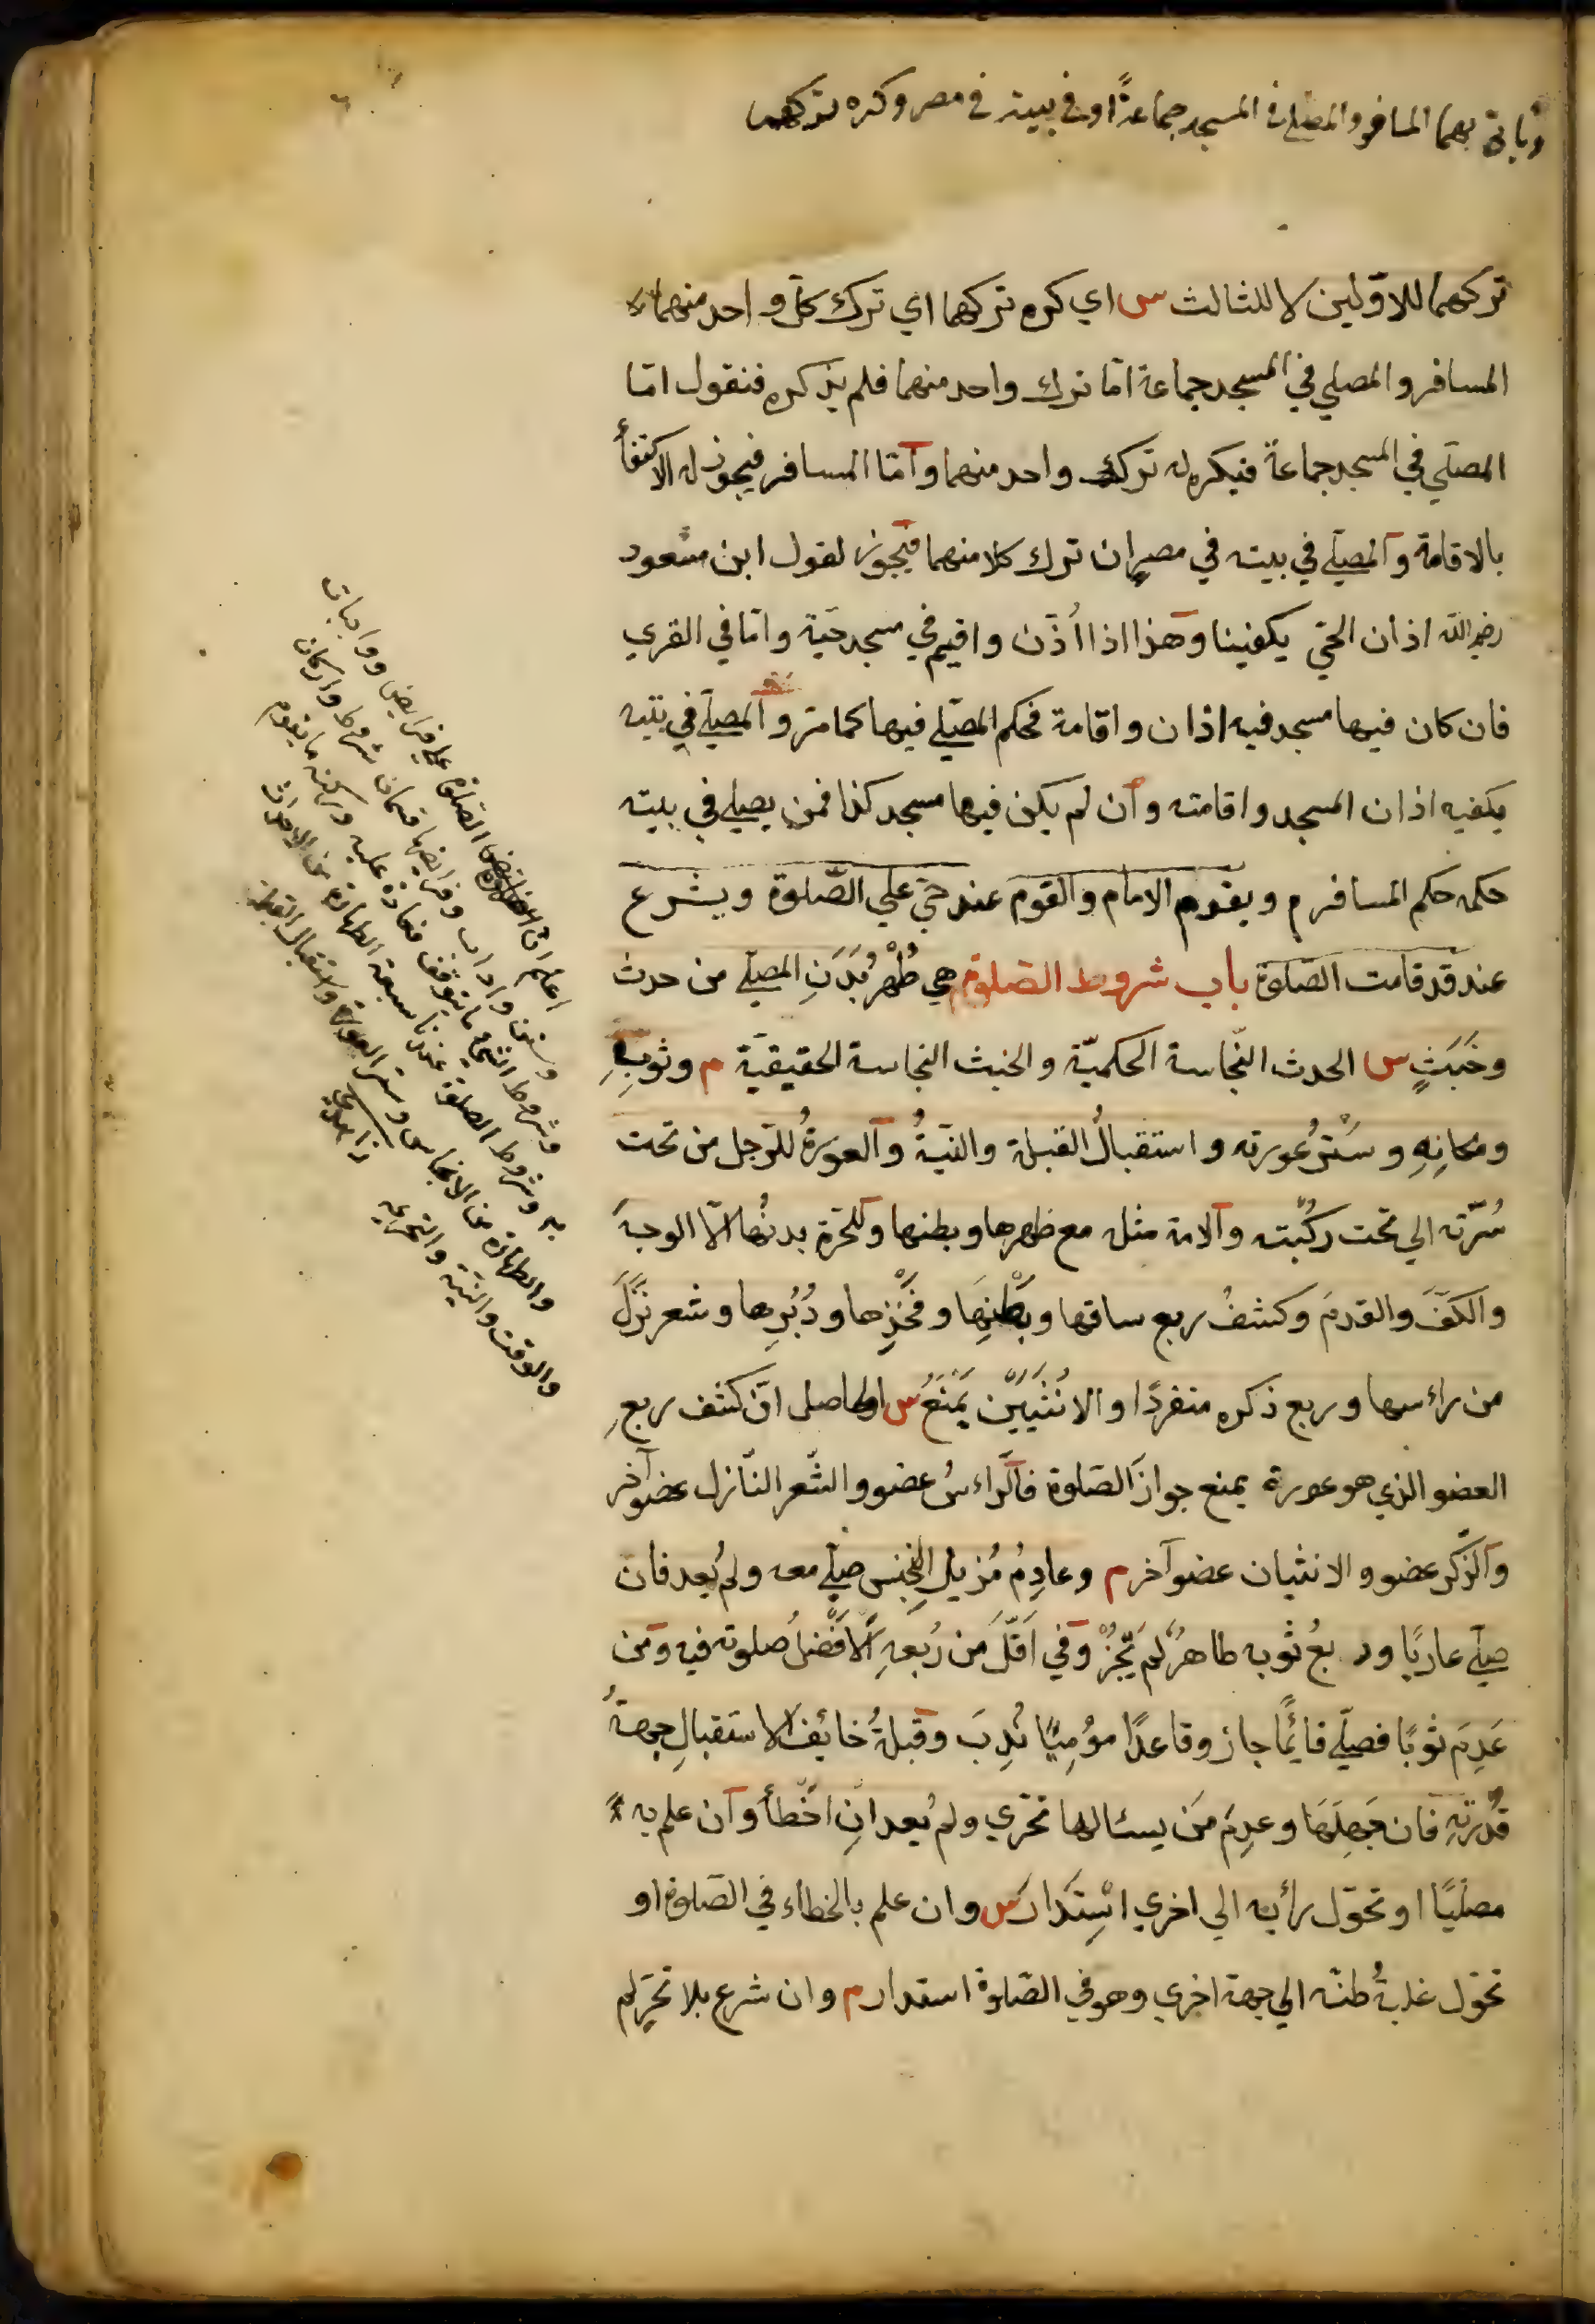 وياتي بهما المسافر والمصلي في المسجد جماعةً او في بيته في مصر وكره تركهما
تركهما للاوّلين لا للثالث س اي كره تركهما اي ترك كلّ واحد منهما
المسافر والمصلي في المسجد جماعة امّا ترك واحد منهما فلم يذكره فنقول امّا
المصلّي في المسجد جماعةً فيكره له ترك واحد منهما وامّا المسافر فيجوز له الاكتفاء
بالاقامة والمصلّي في بيته في مصر ان ترك كلا منهما فيجوز لقول ابن مسعود
رضي الله اذان الحيّ يكفينا وهذا اذا اُذّن واقيم في مسجد حيّه وامّا في القري
فان كان فيها مسجد فيه اذان واقامة فحكم المصلّي فيها كما مرّ والمصلّي في بيته
يكفيه اذان المسجد واقامته وان لم يكن فيها مسجد كذا فمن يصلي في بيته
حكمه حكم المسافر م ويقوم الامام والقوم عند حيّ علي الصّلوة ويشرع
عند قد قامت الصّلوة باب شروط الصّلوة م هي طُهْرُ بَدَنِ المصلّي من حدث
وخَبَثٍ س الحدث النّجاسة الحكميّة والخبث النجاسة الحقيقيّة م وثوبِهِ
ومكانِهِ وسَتْرُ عورته واستقبالُ القبلة والنيّةُ والعورةُ للرّجل من تحت
سُرّته الي تحت ركبته والامة مثله مع ظهرها وبطنها وللحرّة بدنُها الّا الوجهَ
والكفَّ والقدمَ وكشفُ ربع ساقها وبَطْنِهَا وفَخْذِها ودُبُرِها وشعر نزَلَ
من راسها وربع ذكره منفردًا والانُثَيَيْن يَمْنَعُ س الحاصل انّ كشف ربعِ
العضو الذي هو عورة يمنع جوازَ الصّلوة فالرّاسُ عضو والشّعر النّازل عضو آخر
والذّكر عضو والانثيان عضو آخر م وعادِمُ مُزيلِ النجس صلّي معه ولم يُعد فان
صلّي عاريًا وربعُ ثوبه طاهرٌ لم يَجُزْ وفي اَقلَّ من رُبعهِ الافْضلُ صلوته فيه ومن
عَدِمَ ثوبًا فصلّي قائمًا جاز وقاعدًا مُومِيًا نُدِبَ وقبلةُ خائف الاستقبالِ جهةُ
قُدْرتِهِ فان جَهِلَهَا وعدِمَ مَن يسئالها تحرّي ولم يُعد انِ اخْطأَ وان علم به
مصلّيًا او تحوّل رأيه الي اخري اسْتَدَارَ س وان علم بالخطاء في الصّلوة او
تحوّل غلبةُ ظنّه الي جهة اخري وهو في الصّلوة استدار م وان شرع بلا تحرّ لم
اعلم ان الصلوة علي فرايض وواجبات
وسنن واداب وفرايضها قسمان شروط واركان
وشروط الشي ما يتوقف عليه وركنه ما يقوم
به وشروط الصلوة عندنا سبعة الطهارة من الاحداث
والطهارة من الانجاس وستر العورة واستقبال القبلة
والوقت والنيّة والتحريمه
زاهدي